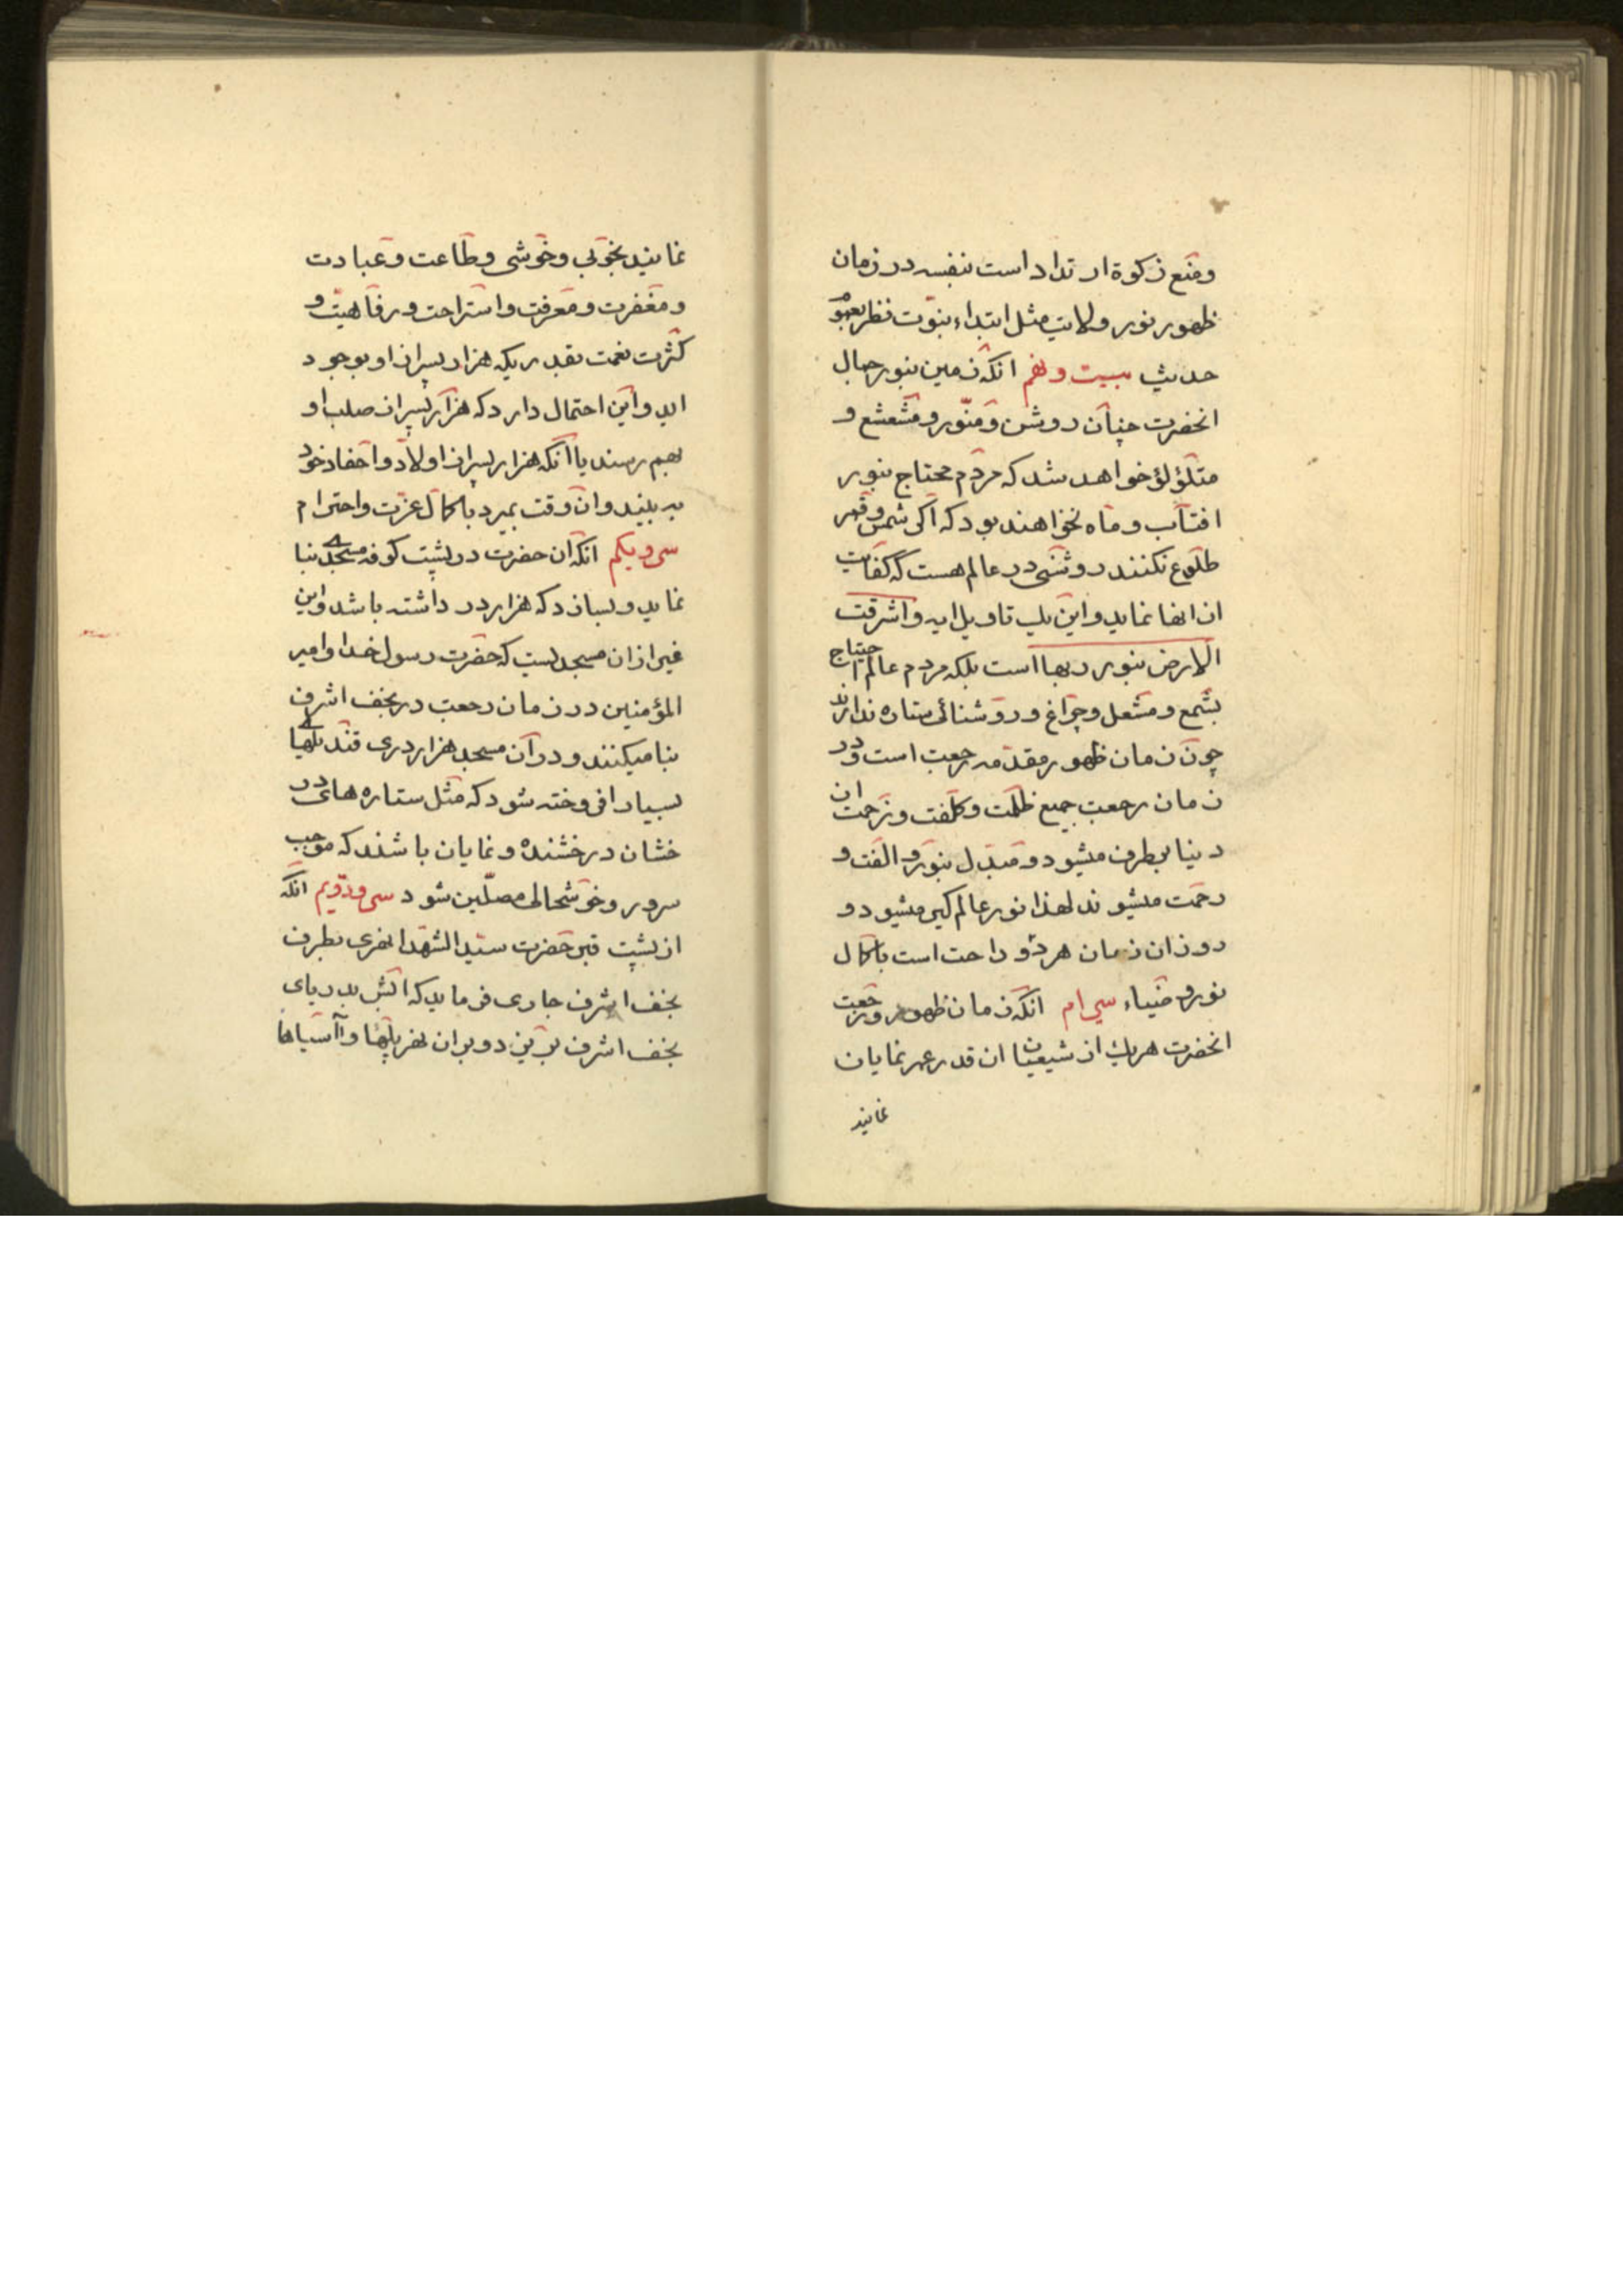 ومنع زكوة ارتداد است بنفسه در زمان
ظهور نور ولايت مثل ابتداء نبوّت نظر بعموم
حديث بيست ونهم انكه زمين بنور جمال
انحضرت چنان روشن ومنّور ومشعشع و
متلؤلؤ خواهد شد كه مردم محتاج بنور
افتاب وماه نخواهند بود كه اكر شمس وقمر
طلوع نكنند روشنى در عالم هست كه كفايت
ان انها نمايد واين يك تاويل ايه واشرقت
الارض بنور ربها است بلكه مردم عالم احتياج
بشمع ومشعل وچراغ وروشنائى ستاره ندارند
چون زمان ظهور مقدّمه رجعت است ودر
زمان رجعت جميع ظلمت وكلفت وزحمت ان
دنيا بطرف ميشود ومبدل بنور والفت و
رحمت ميشوند لهذا نور عالم كير ميشود و
روز ان زمان هر دو راحت است باكمال
نور وضياء سى ام انكه زمان ظهور ورجعت
انحضرت هر يك از شيعيان ان قدر عمر نمايان
نمايند
نمايند بخوبى وخوشى وطاعت وعبادت
ومغفرت ومعرفت واستراحت ورفاهيت و
كثرت نعمت بقدريكه هزار پسران او بوجود
ايد واين احتمال دارد كه هزار پسران صلب او
بهم رسند يا انكه هزار پسران اولاد واحفاد خود
به بيند وان وقت بميرد باكمال عزت واحترام
سى ويكم انكه ان حضرت در پشت كوفه مسجدى بنا
نمايد وبسازد كه هزار در داشته باشد واين
غير از ان مسجديست كه حضرت رسول خدا وامير
المؤمنين در زمان رجعت در نجف اشرف
بنا ميكنند ودر آن مسجد هزار درى قنديلهاى
بسيار افروخته شود كه مثل ستاره هاى در
خشان درخشنده ونمايان باشند كه موجب
سرور وخوشحالى مصلّين شود سى ودويم انكه
از پشت قبر حضرت سيد الشهدا نهرى بطرف
نجف اشرف جارى فرمايد كه ابش بدرياى
نجف اشرف بريزد وبران نهر پلها وآسياها